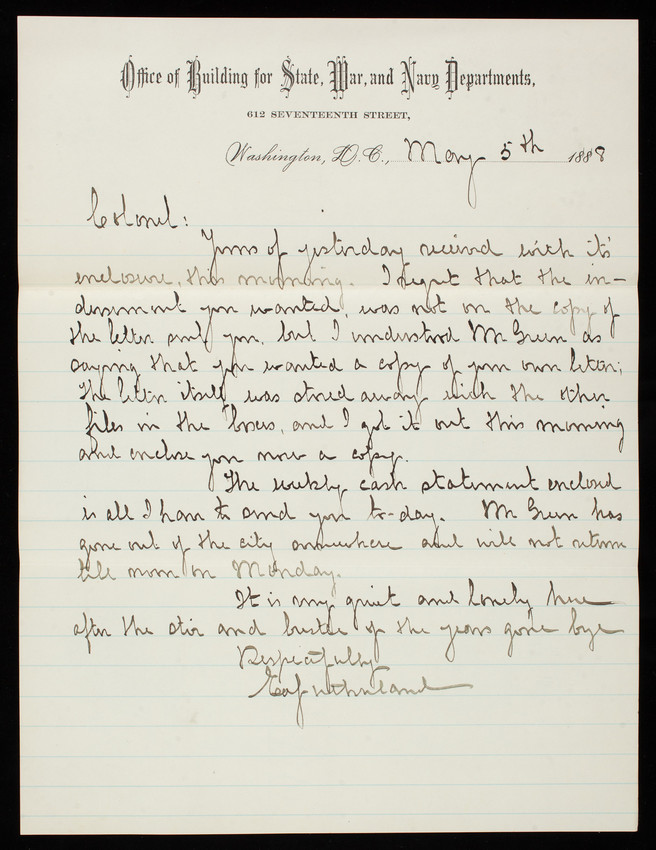 Office of Building for State, War, and Navy Departments,
612 SEVENTEENTH STREET,
Washington, D.C., May 5th 1888
Colonel:
Yours of yesterday received with its'
enclosure, this morning. I regret that the in-
dorsement you wanted, was not on the copy of
the letter sent you, but I understood Mr Green as
saying that you wanted a copy of your own letter;
the letter itself was stored away with the other
files in the boxes, and I got it out this morning
and enclose you now a copy.
The weekly cash statement enclosed
is all I have to send you to-day. Mr Green has
gone out of the city somewhere and will not return
till noon on Monday.
It is very quiet and lonely here
after the stir and bustle of the years gone bye
Respectfully
Sutherland